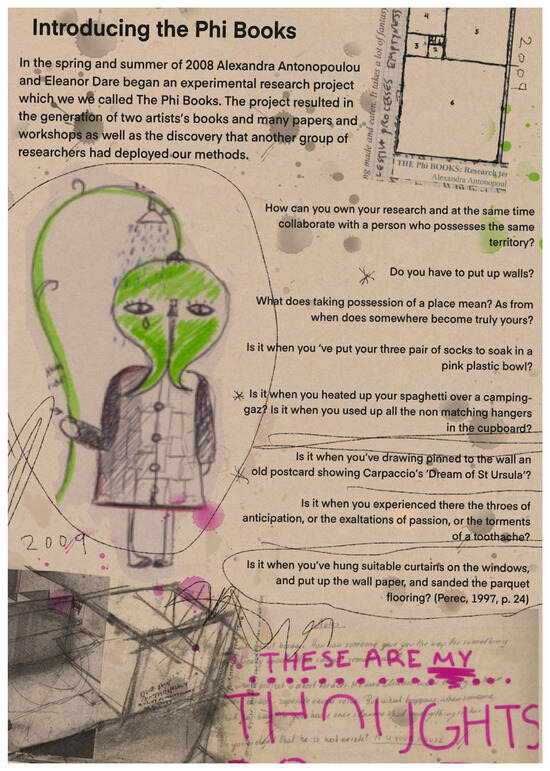 Introducing the Phi Books
In the spring and summer of 2008 Alexandra Antonopoulou
and Eleanor Dare began an experimental research project
which we we called The Phi Books. The project resulted in
the generation of two artists's books and many papers and
workshops as well as the discovery that another group of
researchers had deployed our methods.
ng made and eaten. It takes a lot of fantasy
PROCESSES EMPTYNESS
4
5
3
2
6
2009
THE Phi BOOKS: Research
Alexandra Antonopoul
How can you own your research and at the same time
collaborate with a person who possesses the same
territory?
Do you have to put up walls?
What does taking possession of a place mean? As from
when does somewhere become truly yours?
Is it when you 've put your three pair of socks to soak in a
pink plastic bowl?
Is it when you heated up your spaghetti over a camping-
gaz? Is it when you used up all the non matching hangers
in the cupboard?
Is it when you've drawing pinned to the wall an
old postcard showing Carpaccio's 'Dream of St Ursula'?
Is it when you experienced there the throes of
anticipation, or the exaltations of passion, or the torments
of a toothache?
Is it when you've hung suitable curtains on the windows,
and put up the wall paper, and sanded the parquet
flooring? (Perec, 1997, p. 24)
2009
THESE ARE MY
THOUGHTS